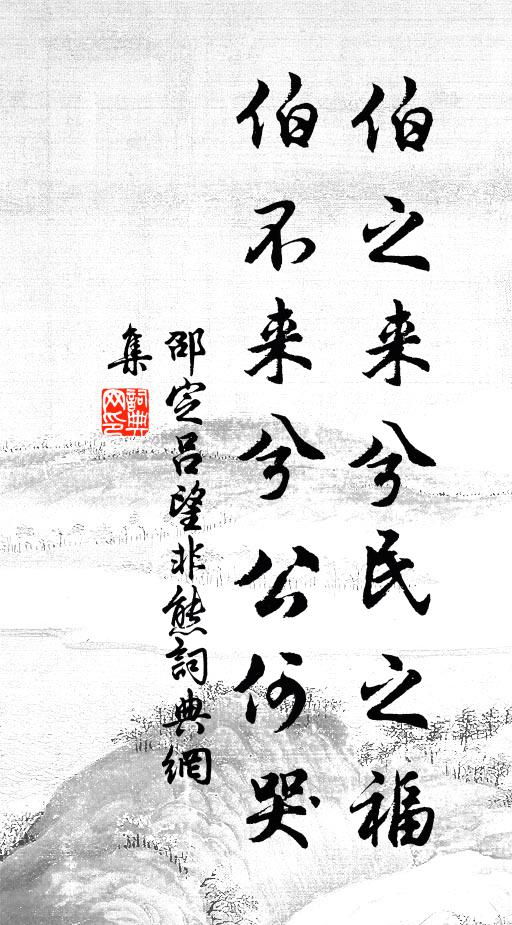 伯之来兮民之福
伯不来兮公何哭
邵定吕望非熊詞典網
集
詞典网印